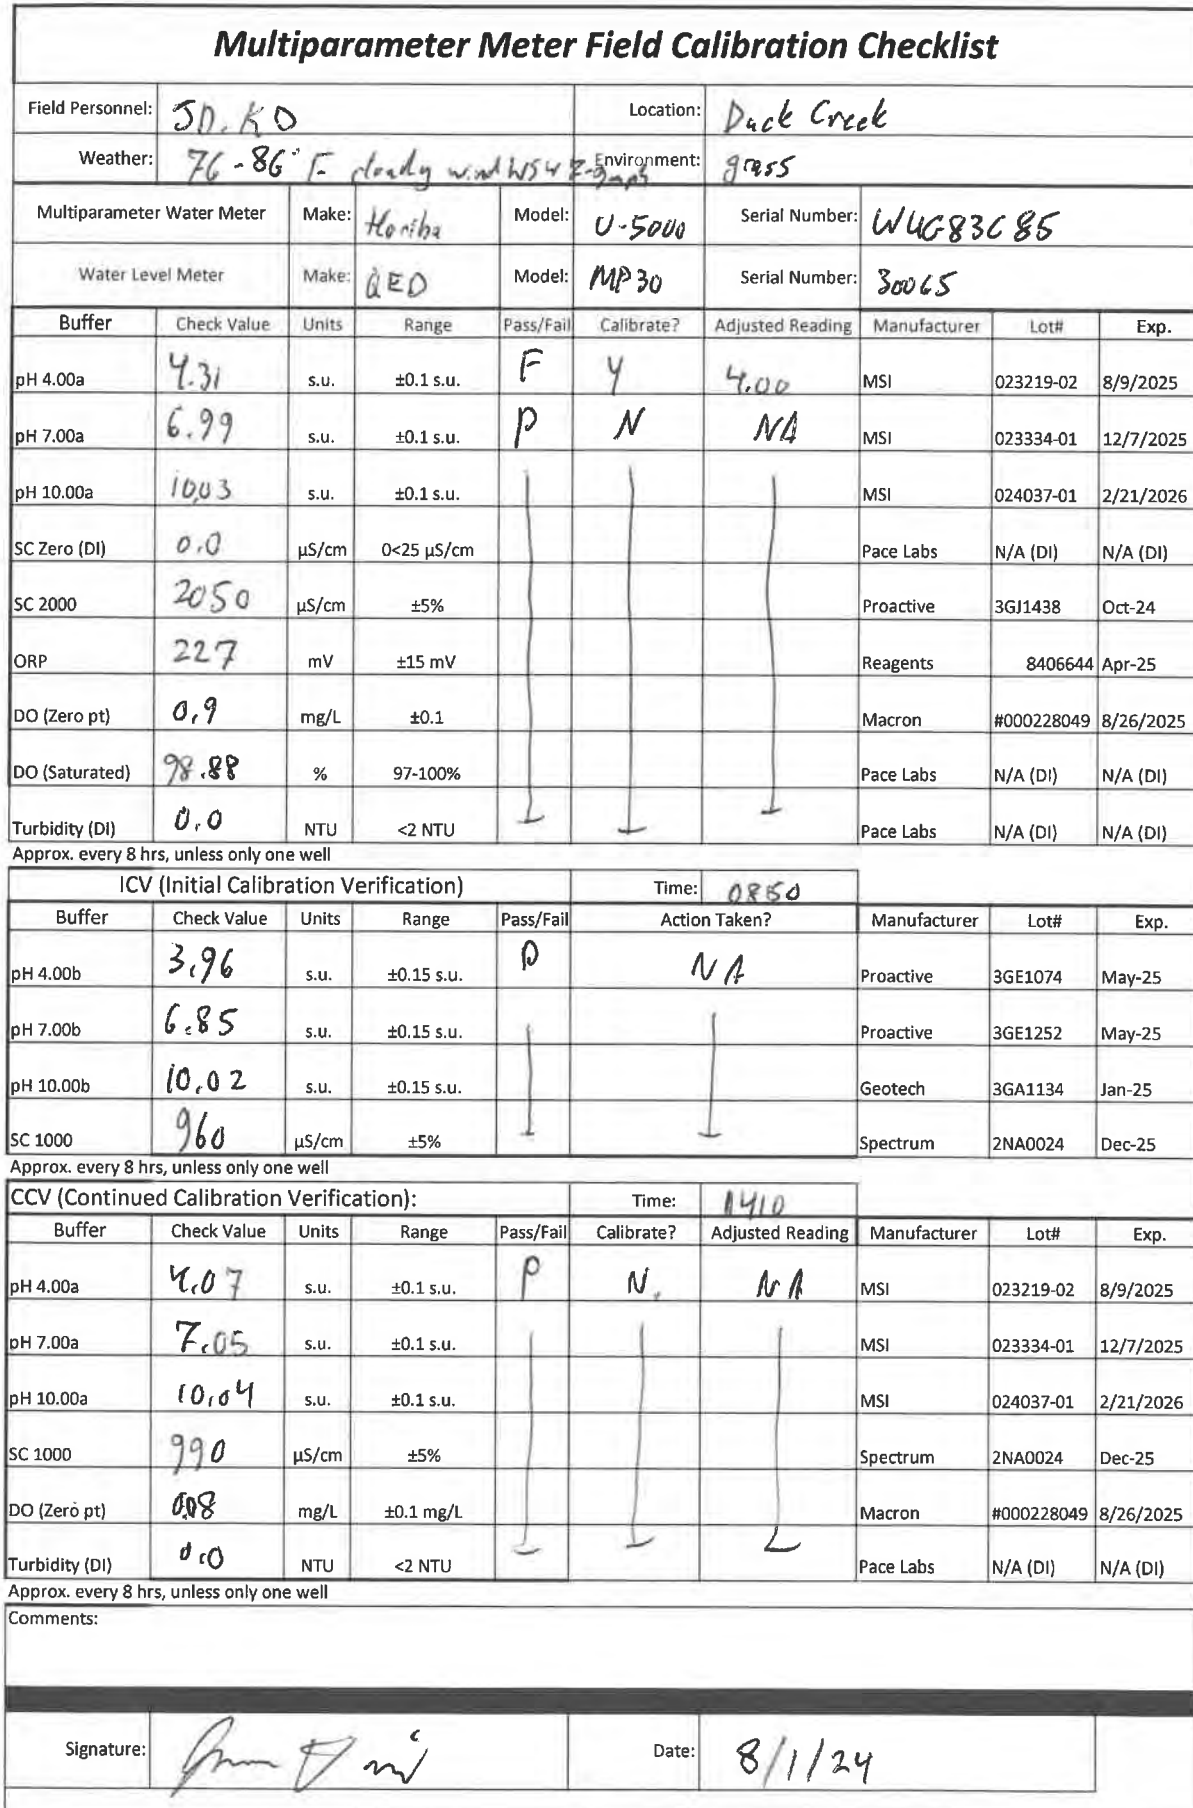 Multiparameter Meter Field Calibration Checklist
Field Personnel: JD. KD Location: Duck Creek
Weather: 76-86° F cloudy wind WSW Environment: grass
Multiparameter Water Meter Make: Horiba Model: U-5000 Serial Number: WUG83C85
Water Level Meter Make: QED Model: MP30 Serial Number: 30065
Buffer Check Value Units Range Pass/Fail Calibrate? Adjusted Reading Manufacturer Lot# Exp.
pH 4.00a 4.31 s.u. ±0.1 s.u. F Y 4.00 MSI 023219-02 8/9/2025
pH 7.00a 6.99 s.u. ±0.1 s.u. P N NA MSI 023334-01 12/7/2025
pH 10.00a 10.03 s.u. ±0.1 s.u. MSI 024037-01 2/21/2026
SC Zero (DI) 0.0 µS/cm 0<25 µS/cm Pace Labs N/A (DI) N/A (DI)
SC 2000 2050 µS/cm ±5% Proactive 3GJ1438 Oct-24
ORP 227 mV ±15 mV Reagents 8406644 Apr-25
DO (Zero pt) 0.9 mg/L ±0.1 Macron #000228049 8/26/2025
DO (Saturated) 98.88 % 97-100% Pace Labs N/A (DI) N/A (DI)
Turbidity (DI) 0.0 NTU <2 NTU Pace Labs N/A (DI) N/A (DI)
Approx. every 8 hrs, unless only one well
ICV (Initial Calibration Verification) Time: 0850
Buffer Check Value Units Range Pass/Fail Action Taken? Manufacturer Lot# Exp.
pH 4.00b 3.96 s.u. ±0.15 s.u. P NA Proactive 3GE1074 May-25
pH 7.00b 6.85 s.u. ±0.15 s.u. Proactive 3GE1252 May-25
pH 10.00b 10.02 s.u. ±0.15 s.u. Geotech 3GA1134 Jan-25
SC 1000 960 µS/cm ±5% Spectrum 2NA0024 Dec-25
Approx. every 8 hrs, unless only one well
CCV (Continued Calibration Verification): Time: 1410
Buffer Check Value Units Range Pass/Fail Calibrate? Adjusted Reading Manufacturer Lot# Exp.
pH 4.00a 4.07 s.u. ±0.1 s.u. P N NA MSI 023219-02 8/9/2025
pH 7.00a 7.05 s.u. ±0.1 s.u. MSI 023334-01 12/7/2025
pH 10.00a 10.04 s.u. ±0.1 s.u. MSI 024037-01 2/21/2026
SC 1000 990 µS/cm ±5% Spectrum 2NA0024 Dec-25
DO (Zero pt) 0.08 mg/L ±0.1 mg/L Macron #000228049 8/26/2025
Turbidity (DI) 0.0 NTU <2 NTU Pace Labs N/A (DI) N/A (DI)
Approx. every 8 hrs, unless only one well
Comments:
Signature: Date: 8/1/24